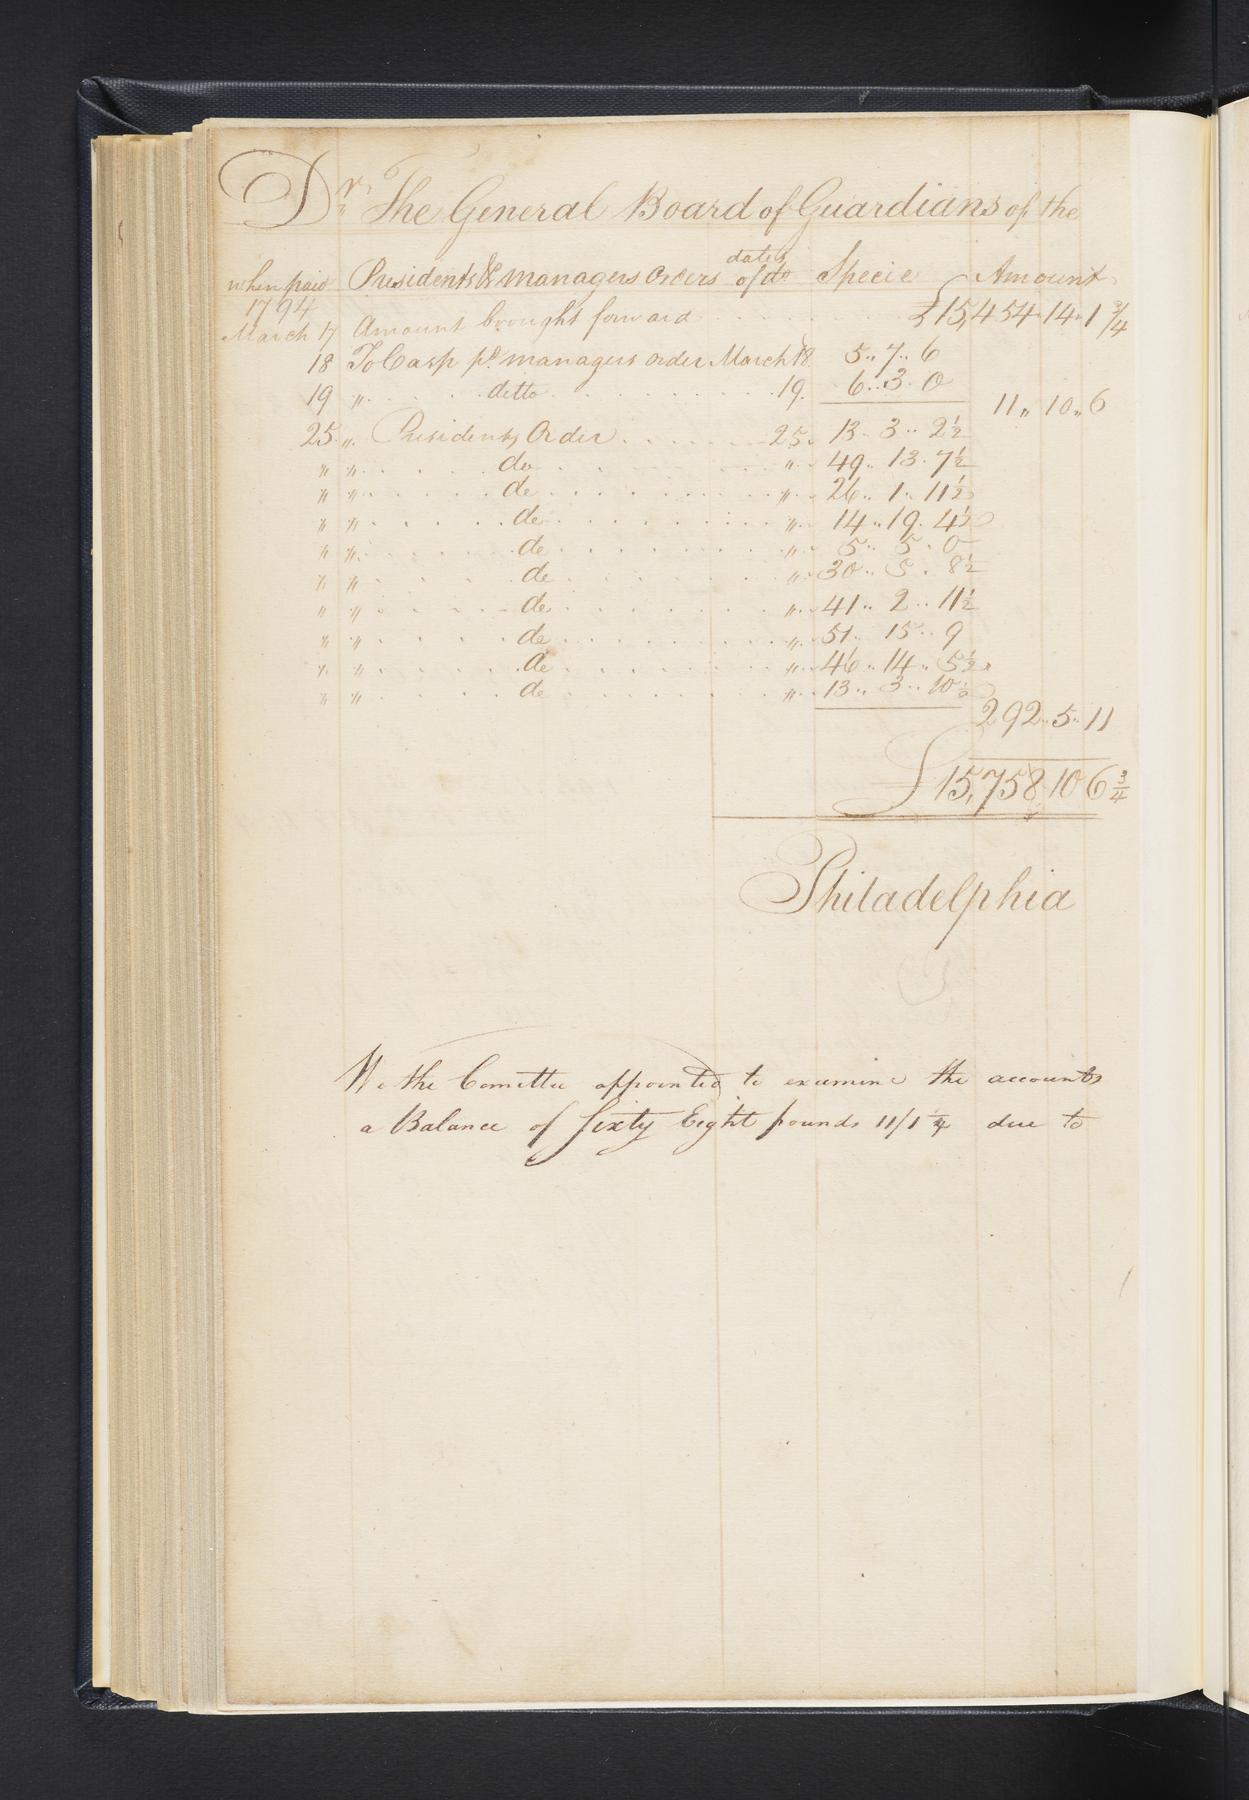 Dr. The General Board of Guardians of the
when paid Presidents & Managers Orders dates of do Specie Amount
1794
March 17 Amount brought forward . . . . . . £15,454..14..1 3/4
18 To Cash pd. managers order March 18. 5..7..6
19 " . . . . ditto . . . . . . . . 19. 6..3..0
11" 10" 6
25 " Presidents Order . . . . . . 25. 13..3..2½
" " . . . . do . . . . . . " . . 49..13..7½
" " . . . . do . . . . . . " . . 26..1..11½
" " . . . . do . . . . . . " . . 14..19..4½
" " . . . . do . . . . . . " . . 5..5..0
" " . . . . do . . . . . . " . . 30..5..8½
" " . . . . do . . . . . . " . . 41..2..11½
" " . . . . do . . . . . . " . . 51..15..9
" " . . . . do . . . . . . " . . 46..14..5½
" " . . . . do . . . . . . " . . 13..3..10½
292..5..11
£15,758 10 6 3/4
Philadelphia
We the Comittee appointed to examine the accounts
a Balance of Sixty Eight pounds 11/1 ¼ due to